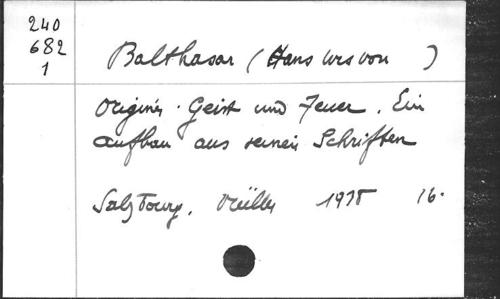 240
682
1
Balthasar (Hans Urs von )
Origines. Geist und Feuer. Ein
aufbau aus seinen Schriften
Salzbourg, Müller 1938 16.